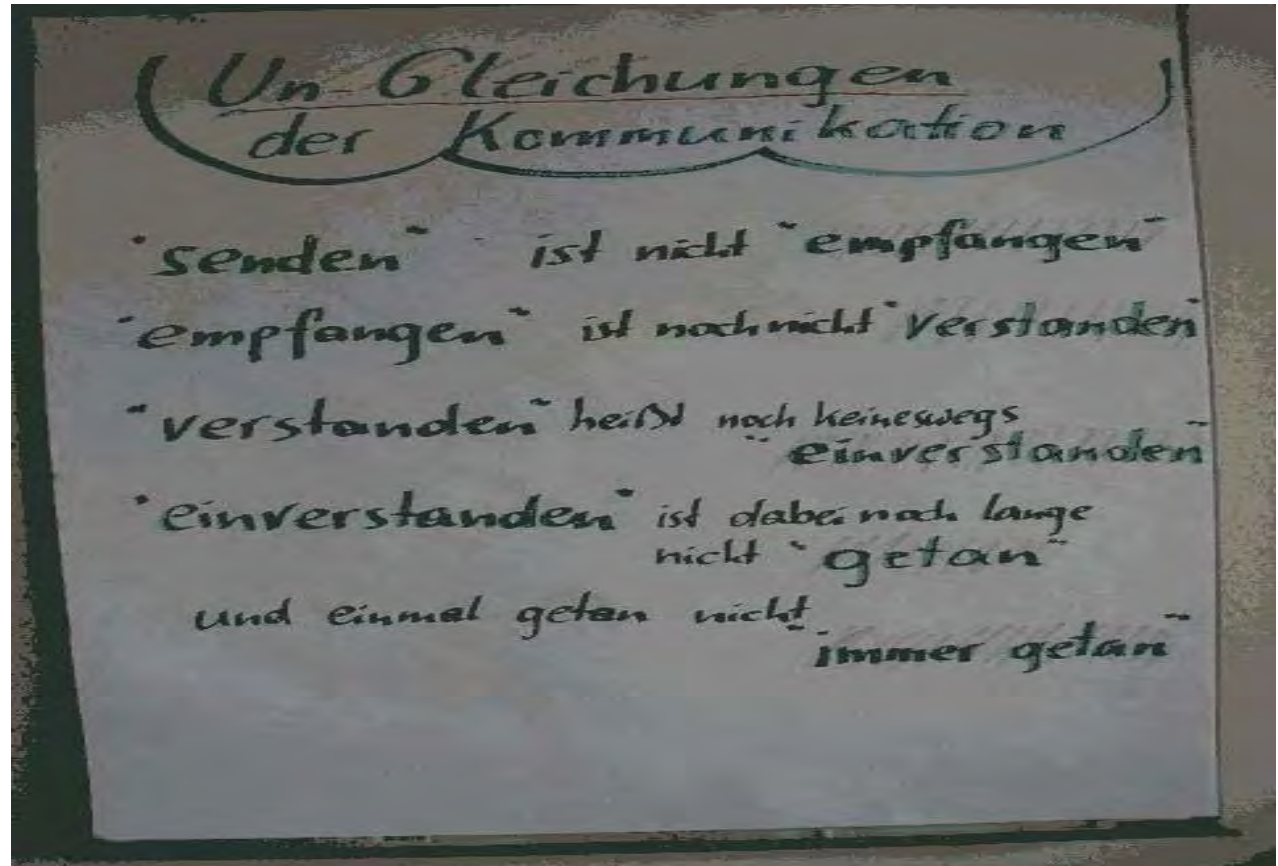 Un-Gleichungen
der Kommunikation
"senden" ist nicht "empfangen"
"empfangen" ist noch nicht "verstanden"
"verstanden" heißt noch keineswegs
"einverstanden"
"einverstanden" ist dabei noch lange
nicht "getan"
und einmal getan nicht
"immer getan"